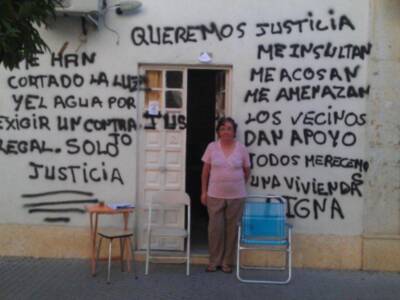 QUEREMOS JUSTICIA
ME HAN
CORTADO LA LUZ
Y EL AGUA POR
EXIGIR UN CONTRA JUS
TO
LEGAL. SOLO
JUSTICIA
ME INSULTAN
ME ACOSAN
ME AMENAZAN
LOS VECINOS
DAN APOYO
TODOS MERECEMOS
UNA VIVIENDA
DIGNA